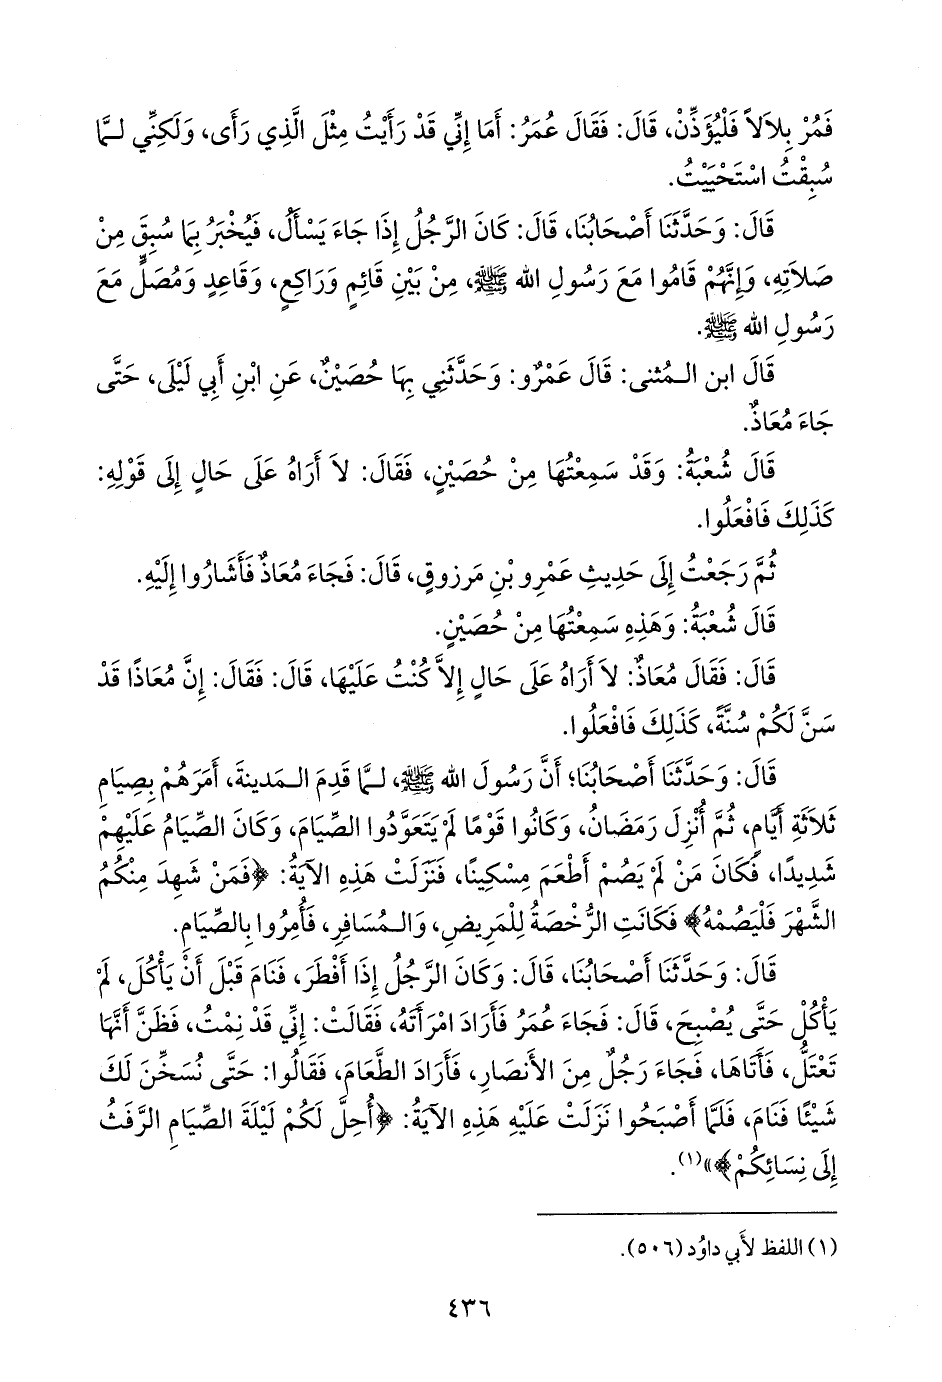 فَمُرْ بِلاَلاً فَلْيُؤَذِّنْ، قَالَ: فَقَالَ عُمَرُ: أَمَا إِنِّي قَدْ رَأَيْتُ مِثْلَ الَّذِي رَأَى، وَلَكِنِّي لَـمَّا
سُبِقْتُ اسْتَحْيَيْتُ.
قَالَ: وَحَدَّثَنَا أَصْحَابُنَا، قَالَ: كَانَ الرَّجُلُ إِذَا جَاءَ يَسْأَلُ، فَيُخْبَرُ بِمَا سُبِقَ مِنْ
صَلاَتِهِ، وَإِنَّهُمْ قَامُوا مَعَ رَسُولِ الله ﷺ، مِنْ بَيْنِ قَائِمٍ وَرَاكِعٍ، وَقَاعِدٍ وَمُصَلٍّ مَعَ
رَسُولِ الله ﷺ.
قَالَ ابن الـمُثنى: قَالَ عَمْرٌو: وَحَدَّثَنِي بِهَا حُصَيْنٌ، عَنِ ابْنِ أَبِي لَيْلَى، حَتَّى
جَاءَ مُعَاذٌ.
قَالَ شُعْبَةُ: وَقَدْ سَمِعْتُهَا مِنْ حُصَيْنٍ، فَقَالَ: لاَ أَرَاهُ عَلَى حَالٍ إِلَى قَوْلِهِ:
كَذَلِكَ فَافْعَلُوا.
ثُمَّ رَجَعْتُ إِلَى حَدِيثِ عَمْرِو بْنِ مَرزوقٍ، قَالَ: فَجَاءَ مُعَاذٌ فَأَشَارُوا إِلَيْهِ.
قَالَ شُعْبَةُ: وَهَذِهِ سَمِعْتُهَا مِنْ حُصَيْنٍ.
قَالَ: فَقَالَ مُعَاذٌ: لاَ أَرَاهُ عَلَى حَالٍ إِلاَّ كُنْتُ عَلَيْهَا، قَالَ: فَقَالَ: إِنَّ مُعَاذًا قَدْ
سَنَّ لَكُمْ سُنَّةً، كَذَلِكَ فَافْعَلُوا.
قَالَ: وَحَدَّثَنَا أَصْحَابُنَا؛ أَنَّ رَسُولَ الله ﷺ، لَـمَّا قَدِمَ الـمَدينةَ، أَمَرَهُمْ بِصِيَامِ
ثَلاَثَةِ أَيَّامٍ، ثُمَّ أُنْزِلَ رَمَضَانُ، وَكَانُوا قَوْمًا لَمْ يَتَعَوَّدُوا الصِّيَامَ، وَكَانَ الصِّيَامُ عَلَيْهِمْ
شَدِيدًا، فَكَانَ مَنْ لَمْ يَصُمْ أَطْعَمَ مِسْكِينًا، فَنَزَلَتْ هَذِهِ الآيَةُ: ﴿فَمَنْ شَهِدَ مِنْكُمُ
الشَّهْرَ فَلْيَصُمْهُ﴾ فَكَانَتِ الرُّخْصَةُ لِلْمَرِيضِ، وَالـمُسَافِرِ، فَأُمِرُوا بِالصِّيَامِ.
قَالَ: وَحَدَّثَنَا أَصْحَابُنَا، قَالَ: وَكَانَ الرَّجُلُ إِذَا أَفْطَرَ، فَنَامَ قَبْلَ أَنْ يَأْكُلَ، لَمْ
يَأْكُلْ حَتَّى يُصْبِحَ، قَالَ: فَجَاءَ عُمَرُ فَأَرَادَ امْرَأَتَهُ، فَقَالَتْ: إِنِّي قَدْ نِمْتُ، فَظَنَّ أَنَّهَا
تَعْتَلُّ، فَأَتَاهَا، فَجَاءَ رَجُلٌ مِنَ الأَنصَارِ، فَأَرَادَ الطَّعَامَ، فَقَالُوا: حَتَّى نُسَخِّنَ لَكَ
شَيْئًا فَنَامَ، فَلَمَّا أَصْبَحُوا نَزَلَتْ عَلَيْهِ هَذِهِ الآيَةُ: ﴿أُحِلَّ لَكُمْ لَيْلَةَ الصِّيَامِ الرَّفَثُ
إِلَى نِسَائِكُمْ﴾»(١).
(١) اللفظ لأَبي داوُد (٥٠٦).
٤٣٦